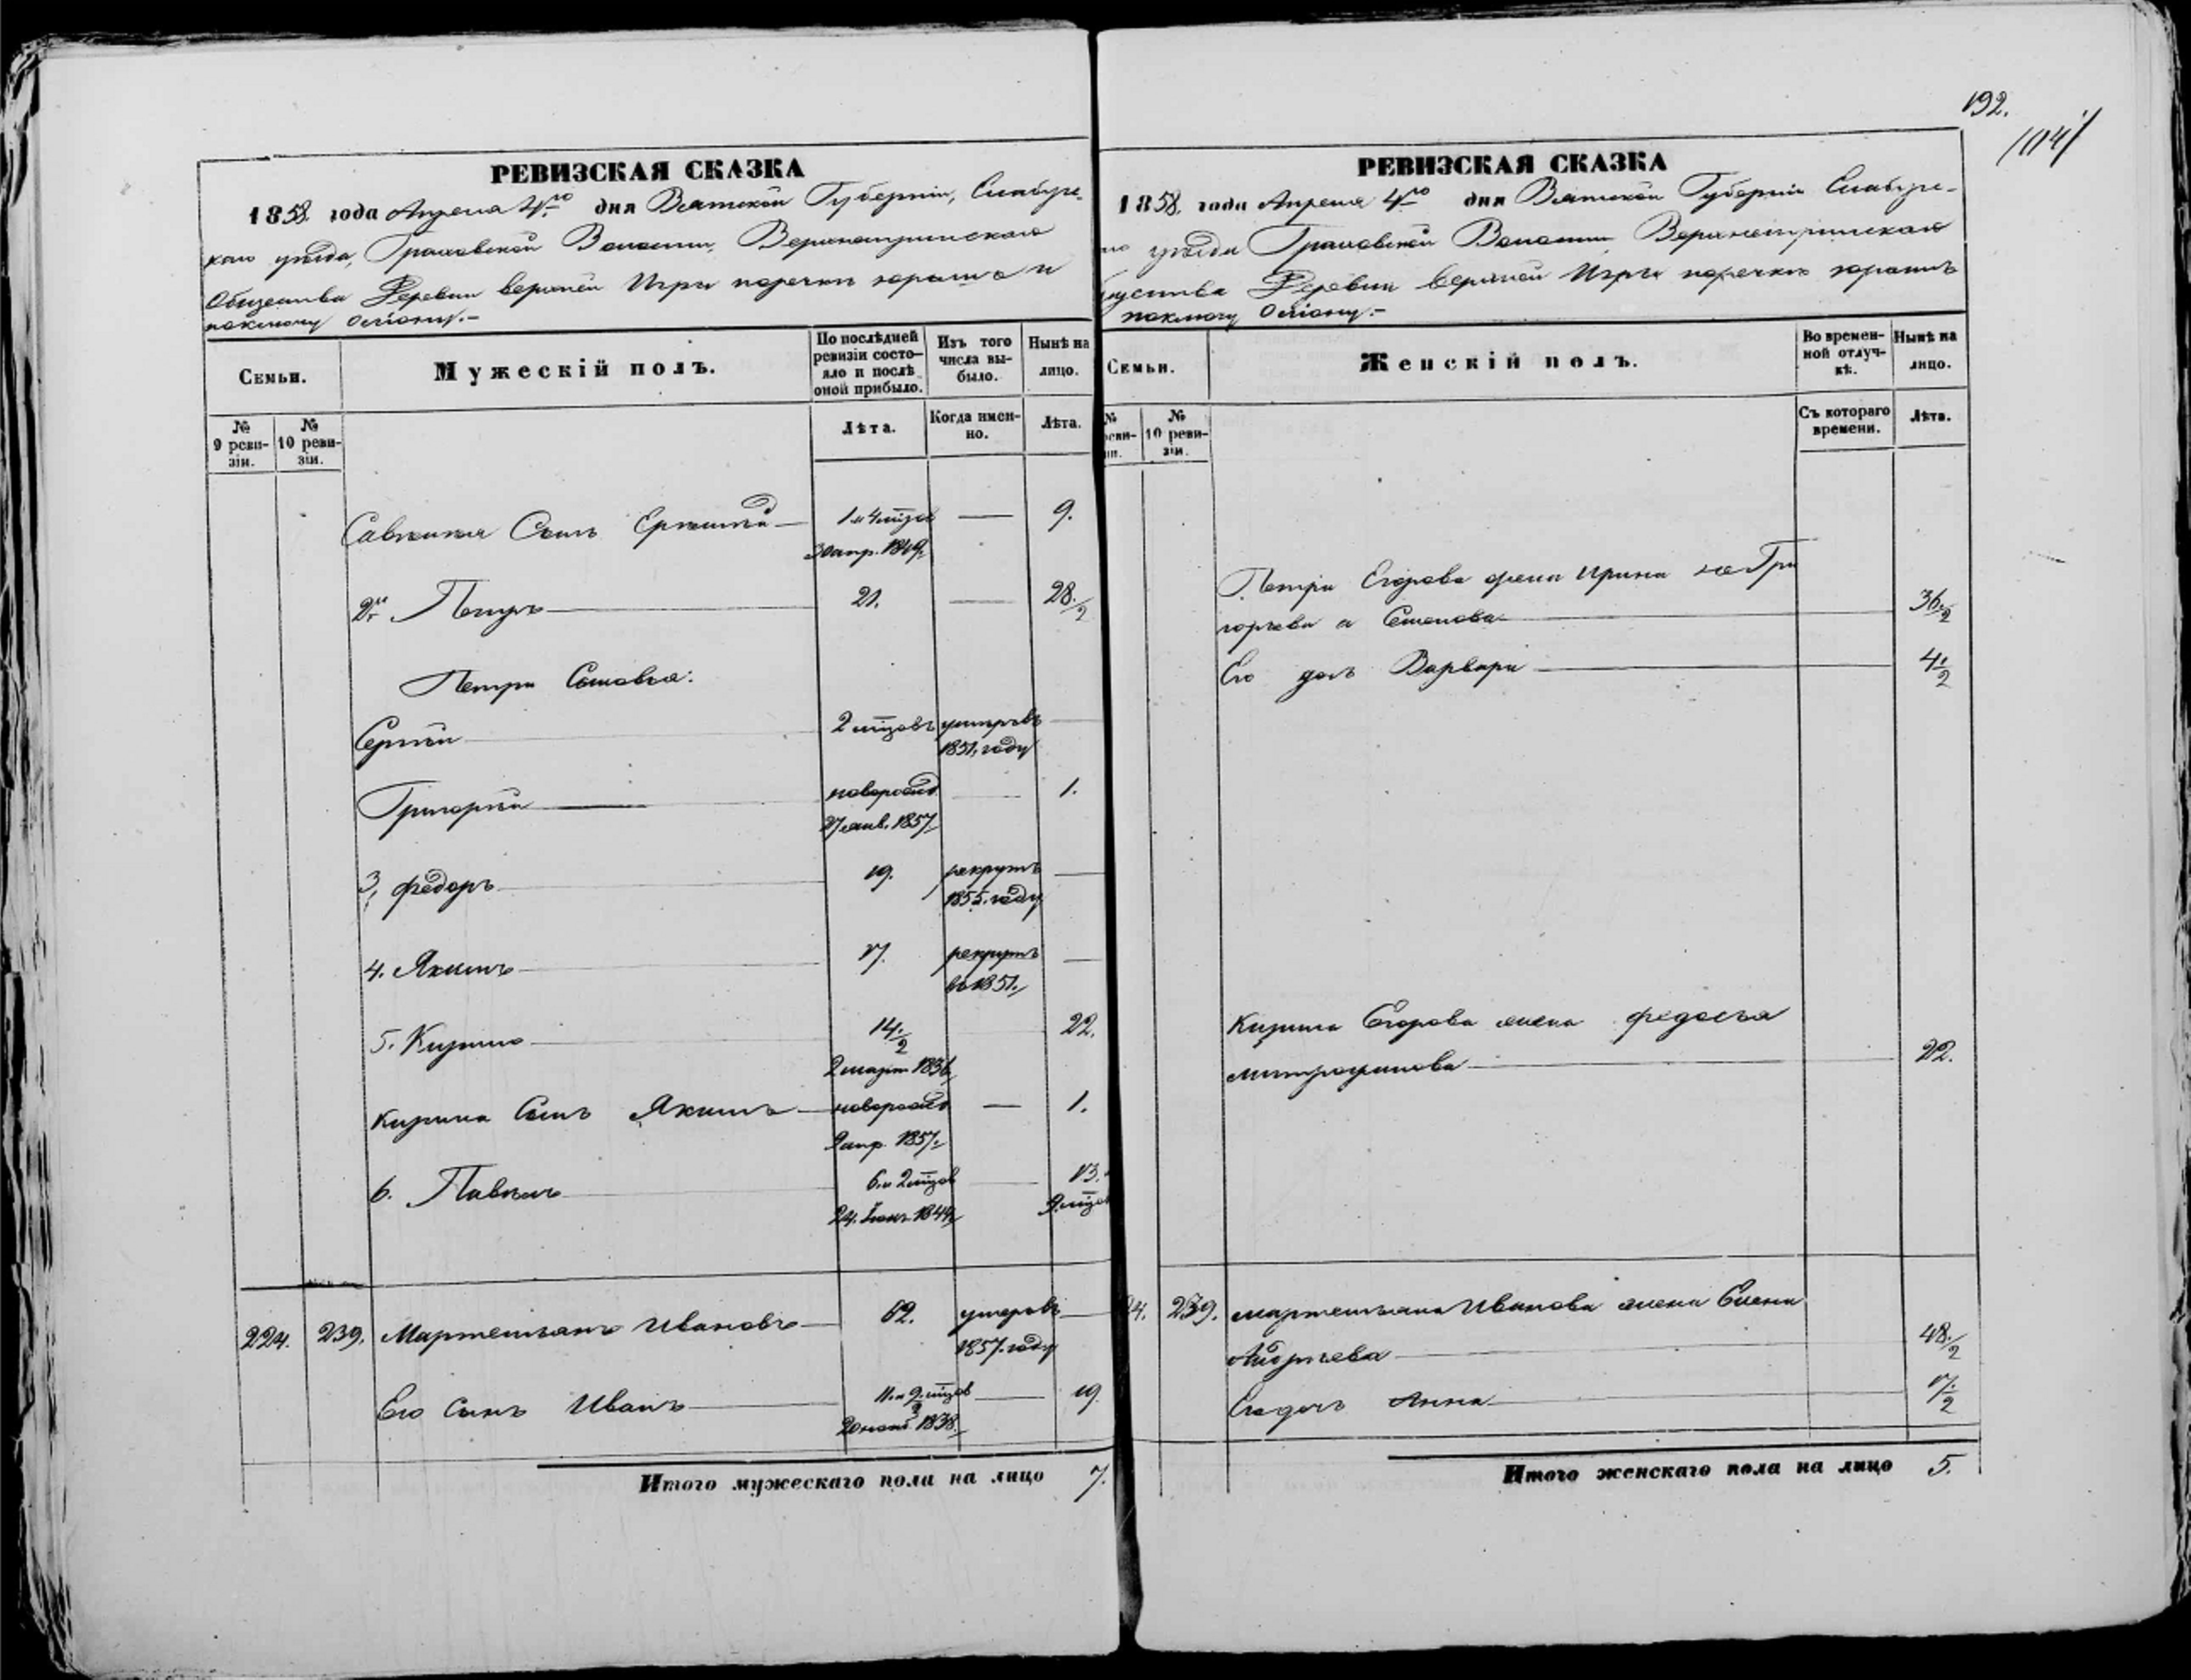 192.
104
РЕВИЗСКАЯ СКАЗКА
1858. года Апреля 4го дня Вятской Губерніи, Елабуж-
каго уѣзда, Граховской Волости, Верхнеигринскаго
Общества Деревни верхней Игры поречкѣ юрашъ и
поключу
Семьи.
Мужескій полъ.
По послѣдней ревизіи состо-яло и послѣ оной прибыло.
Изъ того числа вы-было.
Нынѣ на лицо.
№ 9 реви-зіи.
№ 10 реви-зіи.
Лѣта.
Когда имен-но.
Лѣта.
Савелья Сынъ 1 и 4 мцов — 9.
30 апр. 1849.
2й Петръ 21. — 28 1/2
Петра Сыновья:
Сергѣй 2 мцовъ умеръ въ
1851. году
Григорій новорожд. — 1.
27 янв. 1857.
3, Федоръ 19. рекрутъ
1855. году
4. Якимъ 17. рекрутъ
во 1851.
5. Кирило 14 1/2 22.
2 март 1836
Кирила Сынъ Якимъ новорожд — 1.
9 апр. 1857.
6. Павелъ 6. и 2 мцов — 13. и
24. Іюн. 1844 9. мцов
224. 239. Мартемьянъ Ивановъ 62. умеръ въ
1857. году
Его Сынъ Иванъ 11. и 9. мцов — 19
20 нояб. 1838.
Итого мужескаго пола на лицо 7.
РЕВИЗСКАЯ СКАЗКА
1858. года Апреля 4го дня Вятской Губерніи Елабуж-
го уѣзда Граховской Волости Верхнеигринскаго
щества Деревни верхней Игры поречкѣ юрашъ
поключу
Семьи.
Женскій полъ.
Во времен-ной отлуч-кѣ.
Нынѣ на лицо.
№ реви-зіи.
№ 10 реви-зіи.
Съ котораго времени.
Лѣта.
Петра Егорова жена Ирина Гри
горьева а Семенова 36 1/2
Его дочь Варвара 4 1/2
Кирила Егорова жена Федосья
митрофанова 22.
24. 239. мартемьяна Иванова жена Елена
Андреева 48 1/2
Его дочь Анна 17 1/2
Итого женскаго пола на лицо 5.